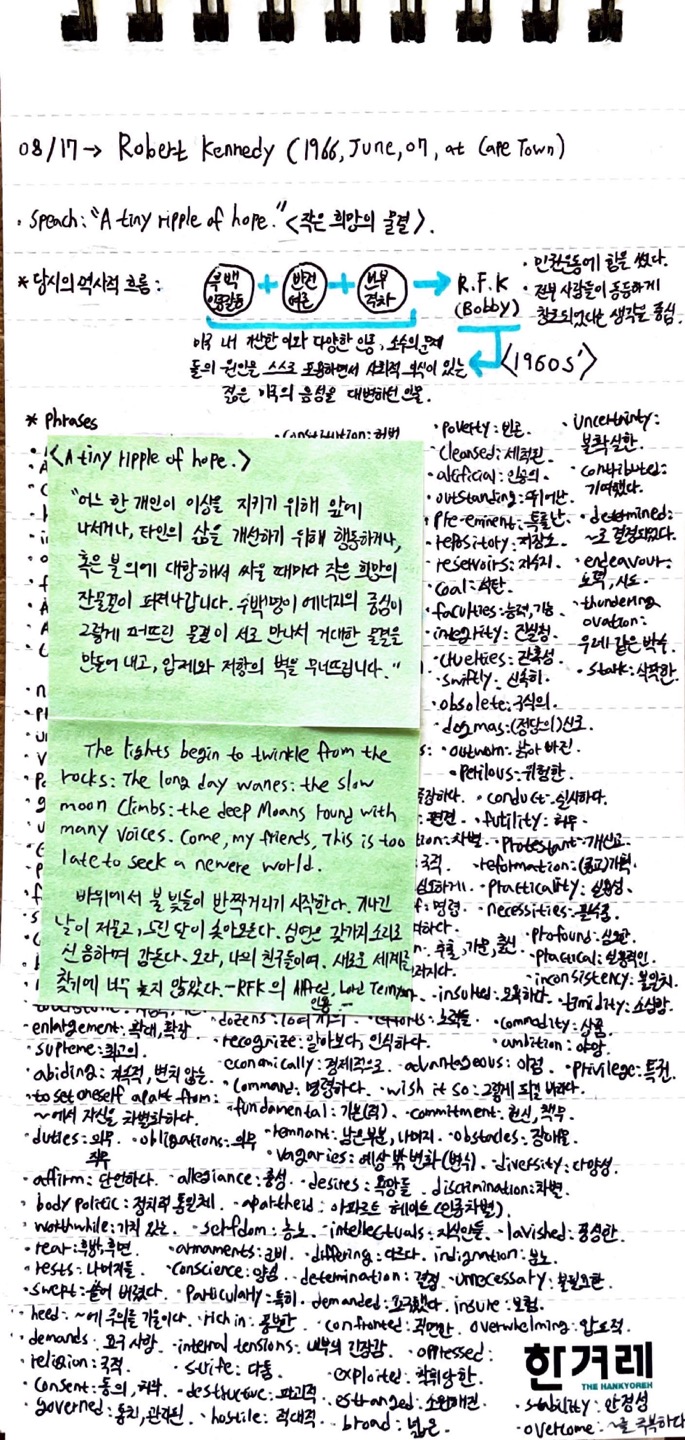 08/17 → Robert Kennedy (1966, June, 07, at Cape Town)
· Speach: "A tiny ripple of hope." <작은 희망의 물결>.
* 당시의 역사적 흐름:
흑백 인종갈등 + 반전 여론 + 빈부 격차 → R.F.K (Bobby)
· 인권운동에 힘을 썼다.
· 전부 사람들이 동등하게
창조되었다는 생각을 중심.
<1960s'>
미국 내 가난한 이와 다양한 인종, 소수의 문제
들의 원인을 스스로 포용하면서 사회적 의식이 있는
젊은 미국의 음성을 대변하던 인물.
* Phrases
<A tiny ripple of hope.>
"어느 한 개인이 이상을 지키기 위해 앞에
나서거나, 타인의 삶을 개선하기 위해 행동하거나,
혹은 불의에 대항해서 싸울 때마다 작은 희망의
잔물결이 퍼져나갑니다. 수백명이 에너지의 중심이
그렇게 퍼뜨린 물결이 서로 만나서 거대한 물결을
만들어 내고, 압제와 저항의 벽을 무너뜨립니다."
The lights begin to twinkle from the
rocks: The long day wanes: the slow
moon climbs: the deep Moans round with
many voices. Come, my friends, This is too
late to seek a newere world.
바위에서 불빛들이 반짝거리기 시작한다. 기나긴
날이 저물고, 느린 달이 솟아오른다. 심연은 갖가지 소리로
신음하며 감돈다. 오라, 나의 친구들이여. 새로운 세계를
찾기에 너무 늦지 않았다. - RFK의 Alfred, Lord Tennyson
인용. -
constitution: 헌법
· poverty: 빈곤.
· cleansed: 세척된
· aleficial: 인공의.
· outstanding: 뛰어난
· pre-eminent: 특출난
· repository: 저장소.
· reservoirs: 저수지.
· coal: 석탄.
· faculties: 능력, 기능
· integrity: 진실성
· cruelties: 잔혹성
· swiftly: 신속히
· obsolete: 구식의.
· dogmas: (정당의)신조
· outworn: 낡아 빠진
· perilous: 위험한.
· uncertainty:
불확실한.
· contributed:
기여했다.
· determined:
~로 결정되었다.
· endeavour:
노력, 시도.
· thundering
ovation:
우레 같은 박수.
· stark: 삭막한.
· conduct: 실시하다.
편견 · futility: 허무
차별 · Protestant: 개신교.
국적. · reformation: (종교)개혁
· practicality: 실용성.
명령. · necessities: 필수품
· profound: 심오한
· practical: 실용적인
· inconsistency: 불일치
· insulted: 모욕하다. · timidity: 소심함
· enlargement: 확대, 확장 · dozens: · efforts: 노력들. · commodity: 상품
· supreme: 최고의. · recognize: 알아보다, 인식하다. · ambition: 야망
· abiding: 지속적, 변치 않는. · economically: 경제적으로. · advantageous: 이점. · privilege: 특권.
· to set oneself apart from: · command: 명령하다. · wish it so: 그렇게 되길 바라다.
~에서 자신을 차별화하다. · fundamental: 기본(적). · commitment: 헌신, 책무.
· duties: 의무 직무 · obligations: 의무 · remnant: 남은부분, 나머지. · obstacles: 장애물
· vagaries: 예상 밖 변화(변칙). · diversity: 다양성.
· affirm: 단언하다. · allegiance: 충성 · desires: 욕망들. discrimination: 차별.
· body politic: 정치적 통일체. · apartheid: 아파르트 헤이트(인종차별).
· worthwhile: 가치 있는. · serfdom: 농노. · intellectuals: 지식인들. · lavished: 풍성한.
· rear: 후방, 후면. · armaments: 군비. · differing: 다르다. indignation: 분노.
· rests: 나머지들. · conscience: 양심. · determination: 결정. · unnecessary: 불필요한.
· swept: 쓸어 버렸다. · particularly: 특히. · demanded: 요구했다. insure: 보험.
· heed: ~에 주의를 기울이다. · rich in: 풍부한 · confronted: 직면한. overwhelming: 압도적.
· demands: 요구 사항. · internal tensions: 내부의 긴장감. · oppressed:
· religion: 국적. · strife: 다툼 · exploited: 착취당한.
· consent: 동의, 허락. · destructive: 파괴적. · estranged: 소외해진
· governed: 통치, 관리된. · hostile: 적대적. · broad: 넓은.
한겨레
THE HANKYOREH
· stability: 안정성
· overcome: ~를 극복하다